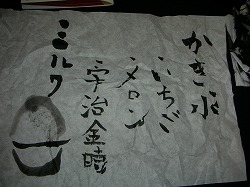 かき氷
いちご
メロン
宇治金時
ミルク